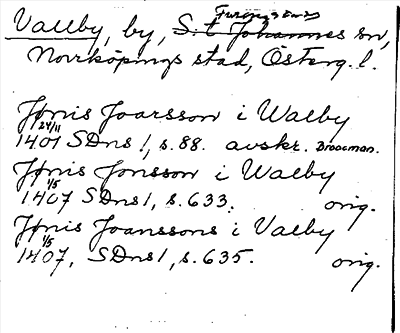 Furingstads
Vallby, by, S:t Johannes sn,
Norrköpings stad, Österg. l.
Jønis Joarsson i Walby
24/11
1401 SDns 1, s. 88. avskr. Broocman.
Jønis Jonsson i Walby
1/5
1407 SDns 1, s. 633. orig.
Jønis Joanssons i Valby
1/5
1407, SDns 1, s. 635. orig.